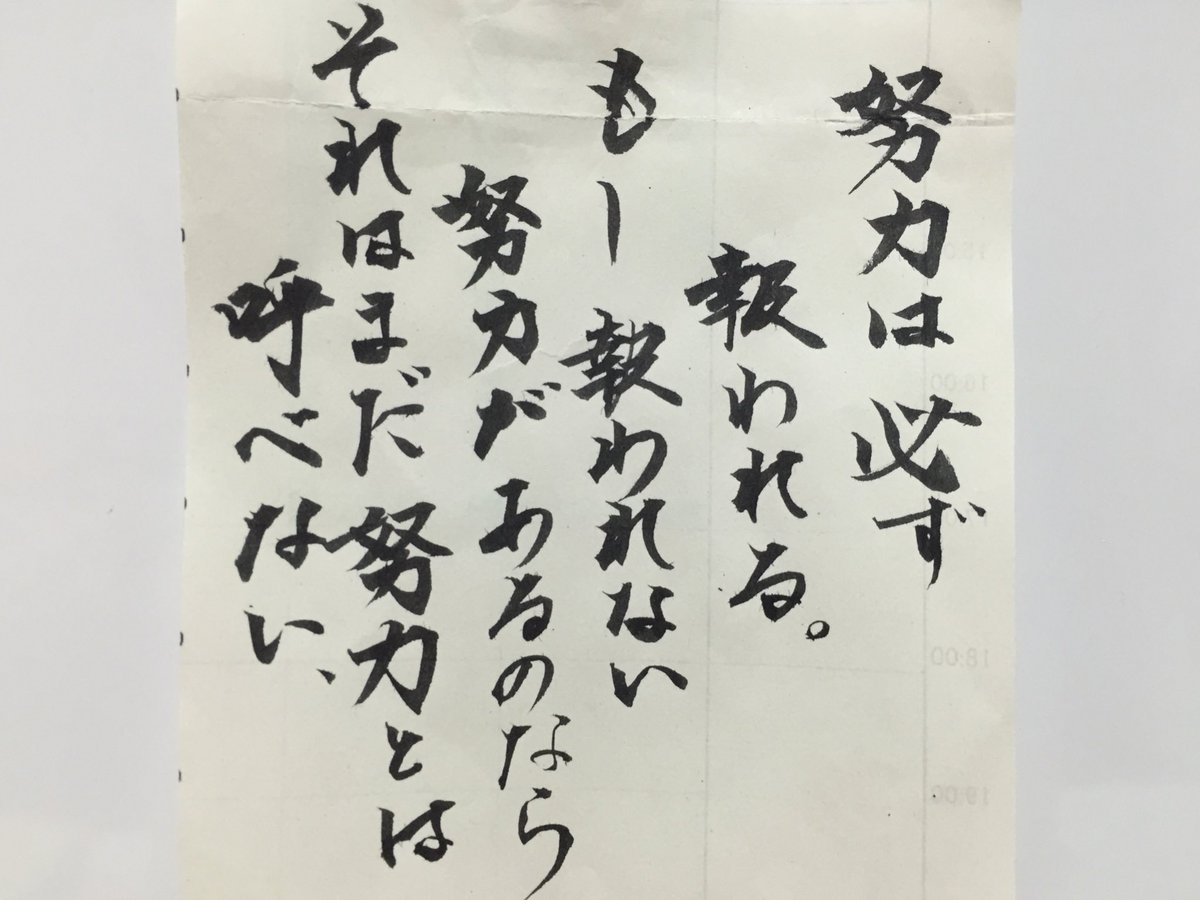 努力は必ず
報われる。
もし報われない
努力があるのなら
それはまだ努力とは
呼べない、
18:00
19:00